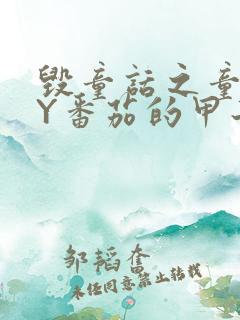 毁童话之童
Y番茄的甲
邹韬奋
未经同意禁止转载